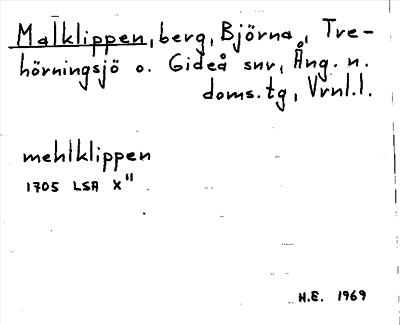 Malklippen, berg, Björna, Tre-
hörningsjö o. Gideå snr, Ång. n.
doms.tg, Vrnl.l.
mehlklippen
1705 LSA X"
H.E. 1969